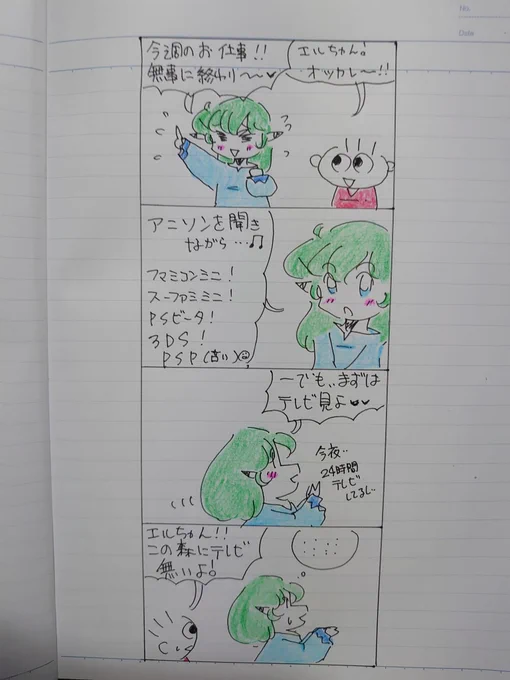 No.
Date
今週のお仕事!!
無事に終わり〜〜♥
エルちゃん!
オッカレ〜!!
アニソンを聞き
ながら…♫
フマミコンミニ!
スーファミミニ!
PSビータ!
3DS!
PSP(古い)
ーでも、まずは
テレビ見よ♥♥
今夜‥
24時間
テレビ
してるし‥
エルちゃん!!
この森にテレビ
無いよ!